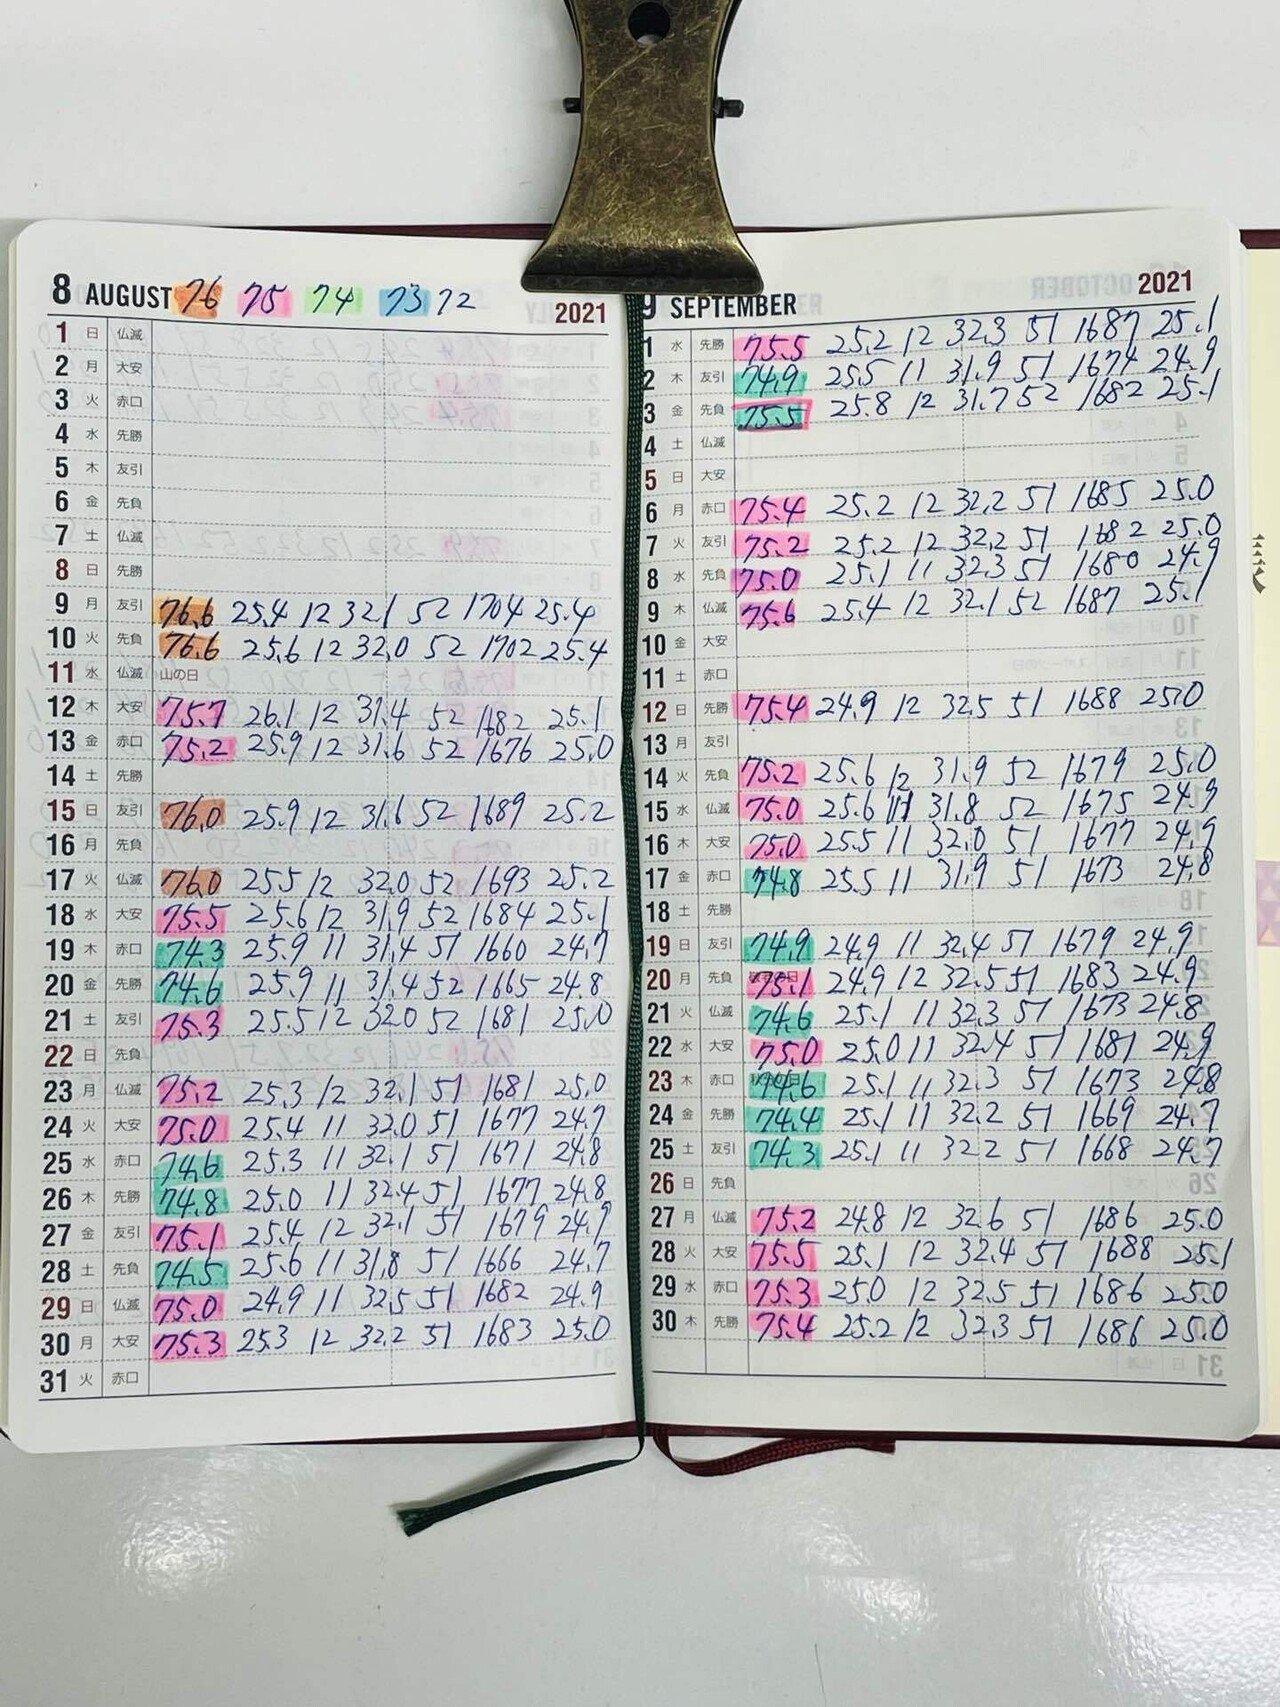 8 AUGUST 76 75 74 73 72 2021
1 日 仏滅
2 月 大安
3 火 赤口
4 水 先勝
5 木 友引
6 金 先負
7 土 仏滅
8 日 先勝
9 月 友引 76.6 25.4 12 32.1 52 1704 25.4
10 火 先負 76.6 25.6 12 32.0 52 1702 25.4
11 水 仏滅 山の日
12 木 大安 75.7 26.1 12 31.4 52 1682 25.1
13 金 赤口 75.2 25.9 12 31.6 52 1676 25.0
14 土 先勝
15 日 友引 76.0 25.9 12 31.6 52 1689 25.2
16 月 先負
17 火 仏滅 76.0 25.5 12 32.0 52 1693 25.2
18 水 大安 75.5 25.6 12 31.9 52 1684 25.1
19 木 赤口 74.3 25.9 11 31.4 51 1660 24.7
20 金 先勝 74.6 25.9 11 31.4 52 1665 24.8
21 土 友引 75.3 25.5 12 32.0 52 1681 25.0
22 日 先負
23 月 仏滅 75.2 25.3 12 32.1 51 1681 25.0
24 火 大安 75.0 25.4 11 32.0 51 1677 24.7
25 水 赤口 74.6 25.3 11 32.1 51 1671 24.8
26 木 先勝 74.8 25.0 11 32.4 51 1677 24.8
27 金 友引 75.1 25.4 12 32.1 51 1679 24.9
28 土 先負 74.5 25.6 11 31.8 51 1666 24.7
29 日 仏滅 75.0 24.9 11 32.5 51 1682 24.9
30 月 大安 75.3 25.3 12 32.2 51 1683 25.0
31 火 赤口
9 SEPTEMBER 2021
1 水 先勝 75.5 25.2 12 32.3 51 1687 25.1
2 木 友引 74.9 25.5 11 31.9 51 1674 24.9
3 金 先負 75.5 25.8 12 31.7 52 1682 25.1
4 土 仏滅
5 日 大安
6 月 赤口 75.4 25.2 12 32.2 51 1685 25.0
7 火 友引 75.2 25.2 12 32.2 51 1682 25.0
8 水 先負 75.0 25.1 11 32.3 51 1680 24.9
9 木 仏滅 75.6 25.4 12 32.1 52 1687 25.1
10 金 大安
11 土 赤口
12 日 先勝 75.4 24.9 12 32.5 51 1688 25.0
13 月 友引
14 火 先負 75.2 25.6 12 31.9 52 1679 25.0
15 水 仏滅 75.0 25.6 11 31.8 52 1675 24.9
16 木 大安 75.0 25.5 11 32.0 51 1677 24.9
17 金 赤口 74.8 25.5 11 31.9 51 1673 24.8
18 土 先勝
19 日 友引 74.9 24.9 11 32.4 51 1679 24.9
20 月 先負 75.1 24.9 12 32.5 51 1683 24.9
21 火 仏滅 74.6 25.1 11 32.3 51 1673 24.8
22 水 大安 75.0 25.0 11 32.4 51 1681 24.9
23 木 赤口 74.6 25.1 11 32.3 51 1673 24.8
24 金 先勝 74.4 25.1 11 32.2 51 1669 24.7
25 土 友引 74.3 25.1 11 32.2 51 1668 24.7
26 日 先負
27 月 仏滅 75.2 24.8 12 32.6 51 1686 25.0
28 火 大安 75.5 25.1 12 32.4 51 1688 25.1
29 水 赤口 75.3 25.0 12 32.5 51 1686 25.0
30 木 先勝 75.4 25.2 12 32.3 51 1686 25.0